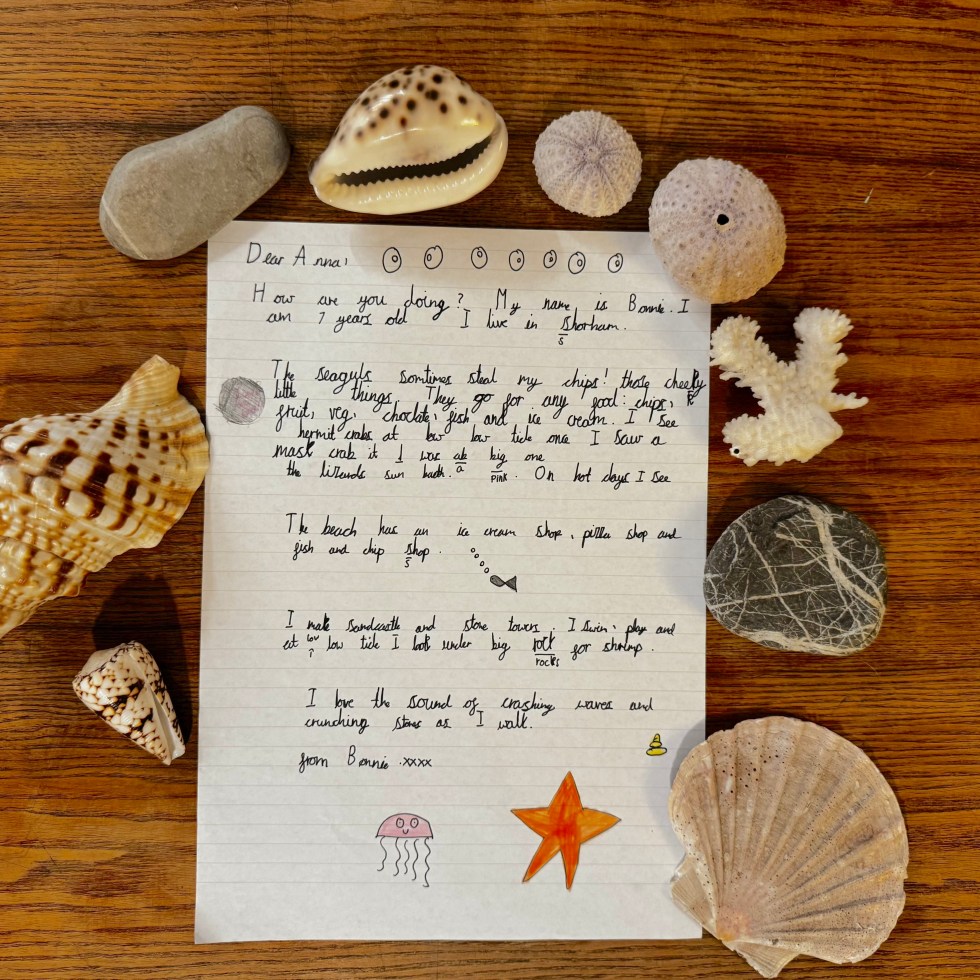 Dear Anna,
How are you doing? My name is Bonnie. I
am 7 years old I live in Shorham.
S
The seaguls somtimes steal my chips! those cheeky
k
little things. They go for any food: chips,
fruit, veg, choclate, fish and ice cream. I see
hermit crabs at low low tide one I saw a
mask crab it was a big one
a
pink
the lizards sun bath. On hot days I see
The beach has an ice cream shop, pizza shop and
fish and chip shop.
S
I make sandcastls and stone towers. I swim, play and
at low low tide I look under big rock for shrimp.
rocks
I love the sound of crashing waves and
crunching stones as I walk.
from Bonnie .xxxx